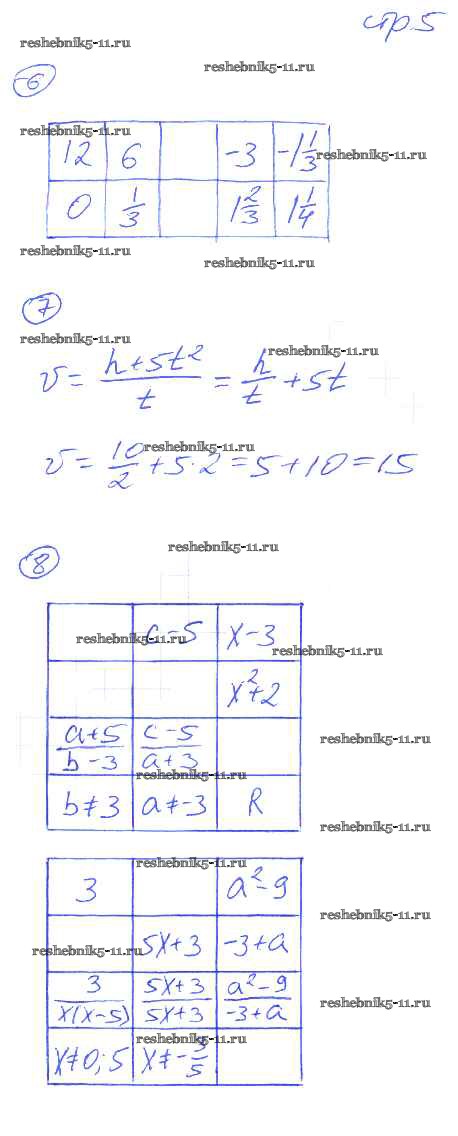 стр 5
reshebnik5-11.ru
reshebnik5-11.ru
6
reshebnik5-11.ru
12 6 -3 -1 1/3
reshebnik5-11.ru
0 1/3 1 2/3 1 1/4
reshebnik5-11.ru
reshebnik5-11.ru
7
reshebnik5-11.ru
reshebnik5-11.ru
v = (h+5t²)/t = h/t + 5t
reshebnik5-11.ru
v = 10/2 + 5·2 = 5 + 10 = 15
reshebnik5-11.ru
8
c-5 x-3
reshebnik5-11.ru
reshebnik5-11.ru
x²+2
(a+5)/(b-3) (c-5)/(a+3)
reshebnik5-11.ru
reshebnik5-11.ru
b≠3 a≠-3 R
reshebnik5-11.ru
reshebnik5-11.ru
3 a²-9
reshebnik5-11.ru
5x+3 -3+a
reshebnik5-11.ru
3/(x(x-5)) (5x+3)/(5x+3) (a²-9)/(-3+a)
reshebnik5-11.ru
reshebnik5-11.ru
x≠0;5 x≠-3/5